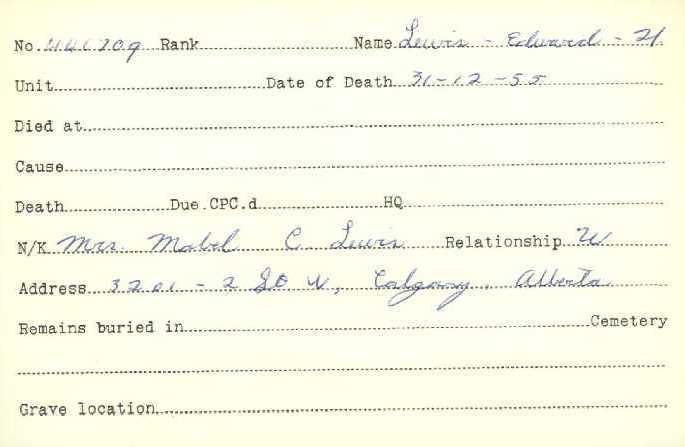 No. 446709 Rank Name Lewis - Edward - H.
Unit Date of Death 31-12-55
Died at
Cause
Death Due.CPC.d HQ
N/K Mrs. Mabel C Lewis Relationship W
Address 3201 - 2 St W, Calgary, Alberta
Remains buried in Cemetery
Grave location